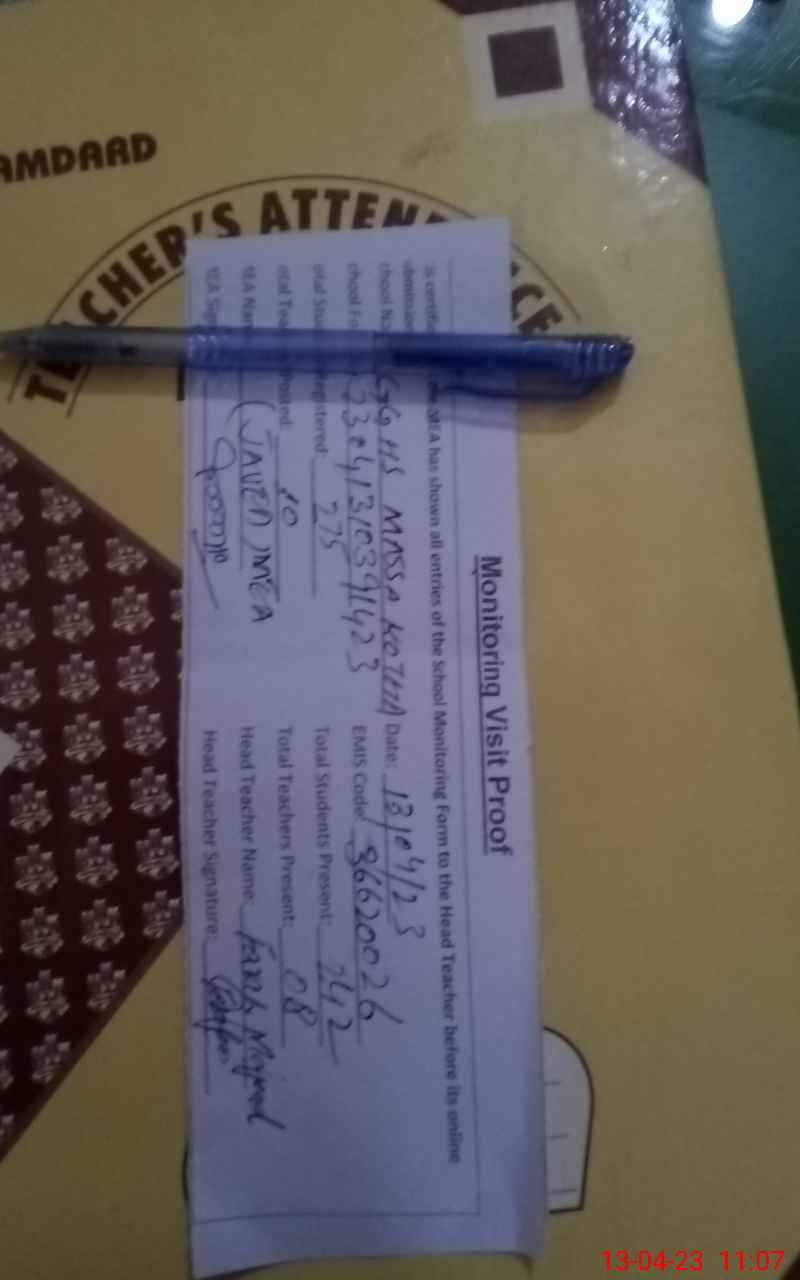 AMDARD
TEACHER'S ATTEN CE
Monitoring Visit Proof
is certifie the MEA has shown all entries of the School Monitoring Form to the Head Teacher before its online
ubmission
chool Na GGHS MASSA KOTHA Date: 13/04/23
chool Fo EMIS Code: 36620026
otal Stu Registered: 275 Total Students Present: 242
otal Tea osted: 10 Total Teachers Present: 08
MEA Nam (JAVED) MEA Head Teacher Name: Farah Majeed
MEA Sig Head Teacher Signature:
13-04-23 11:07